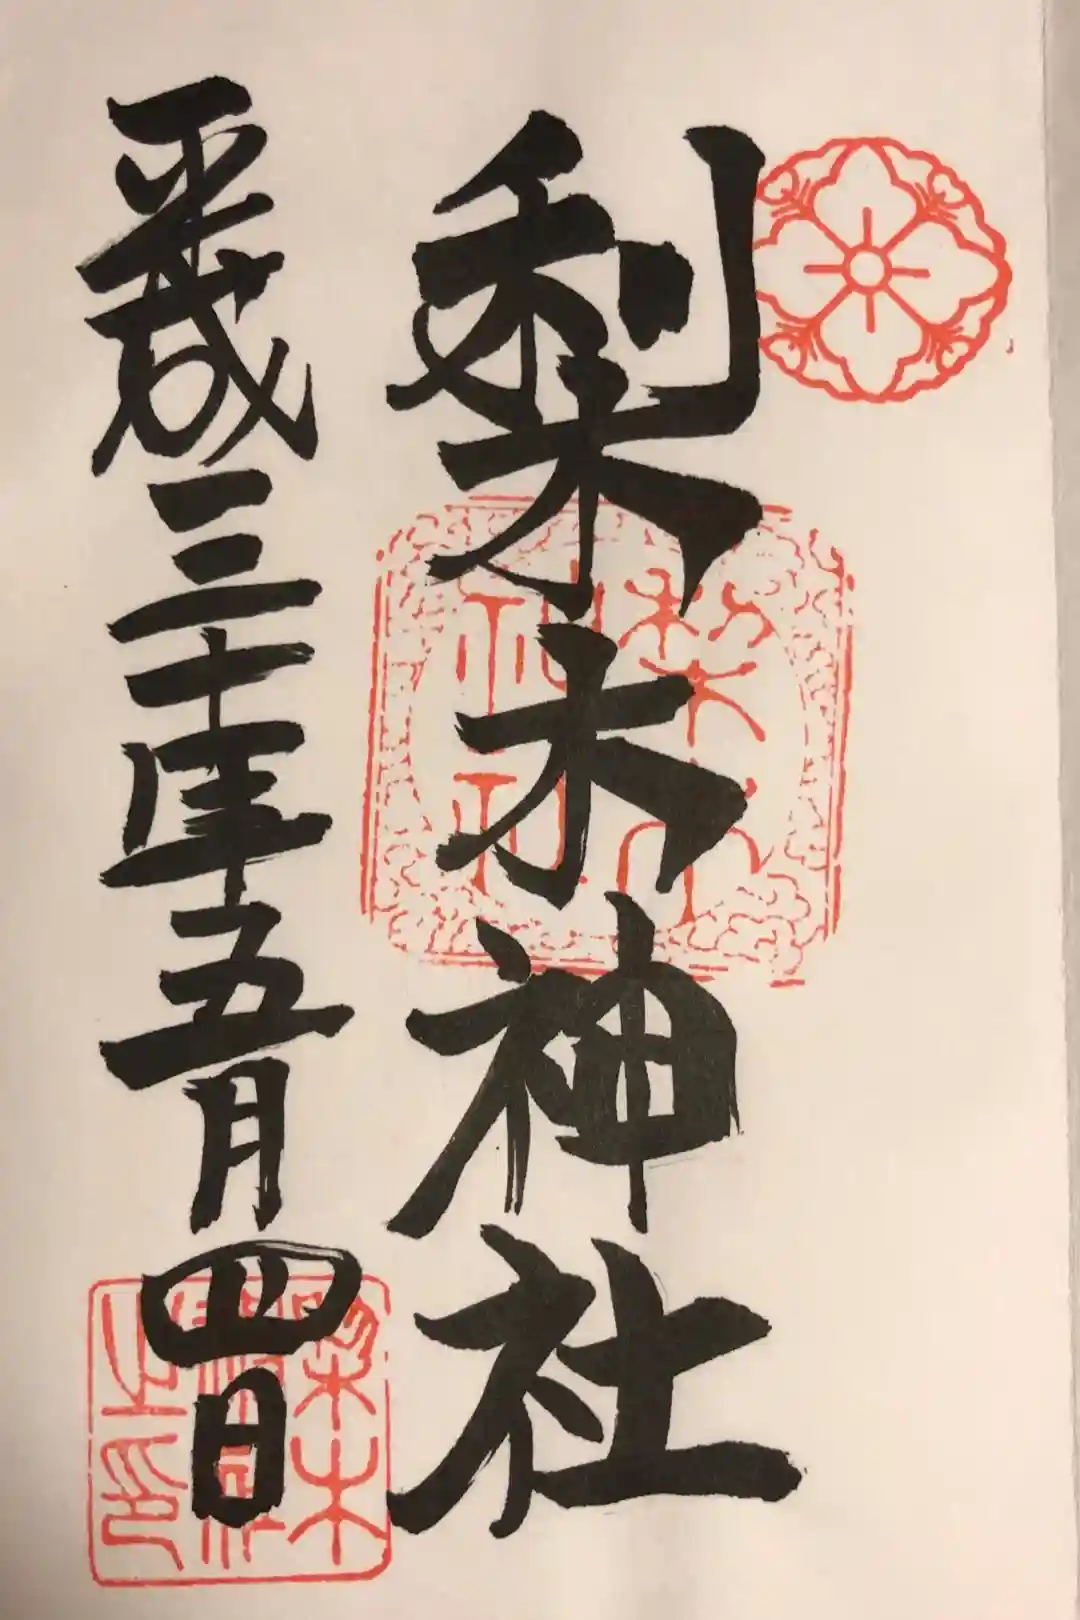 梨木神社
平成三十年五月四日
梨木神社
梨木神社之印